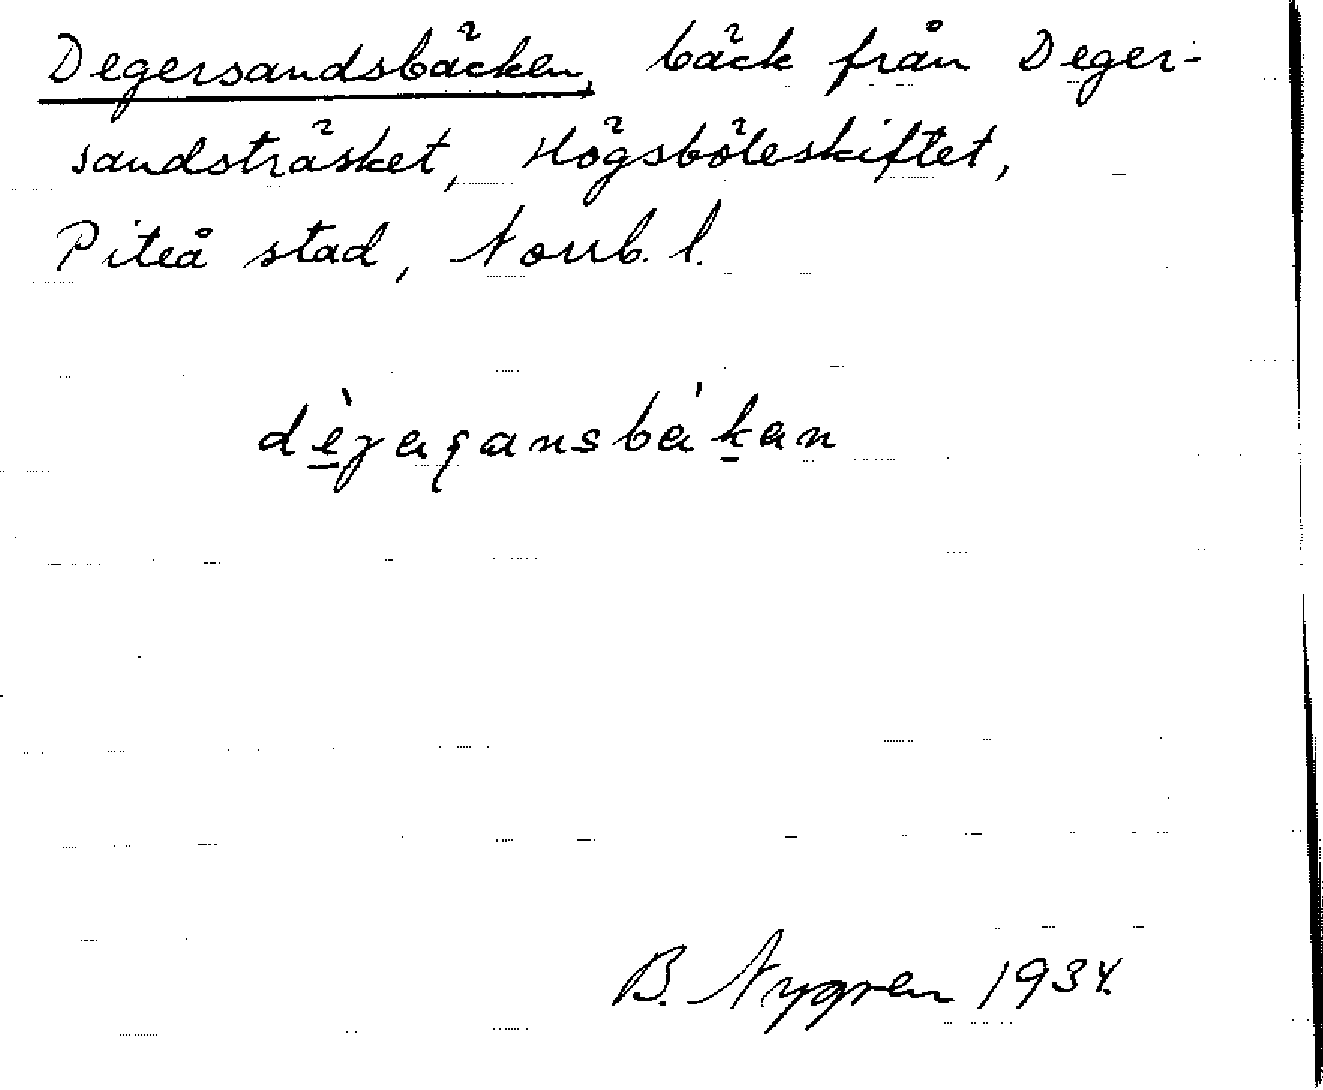 Degersandsbäcken, bäck från Deger-
sandsträsket, Högsböleskiftet,
Piteå stad, Norrb. l.
B. Nygren 1934.